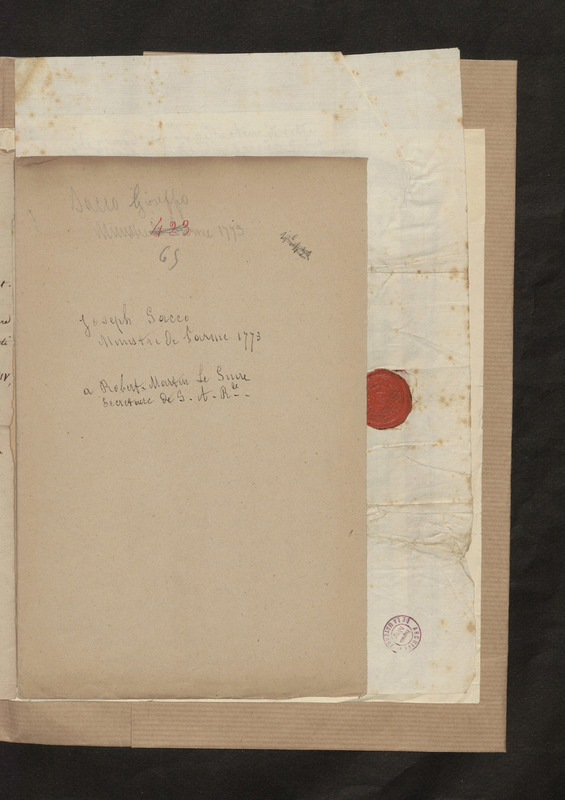 Sacco Giuseppe
Ministre Parme 1773
423
65
Joseph Sacco
Ministre de Parme 1773
a Robert-Martin Le Suire
Secretaire de S. A. Rle.